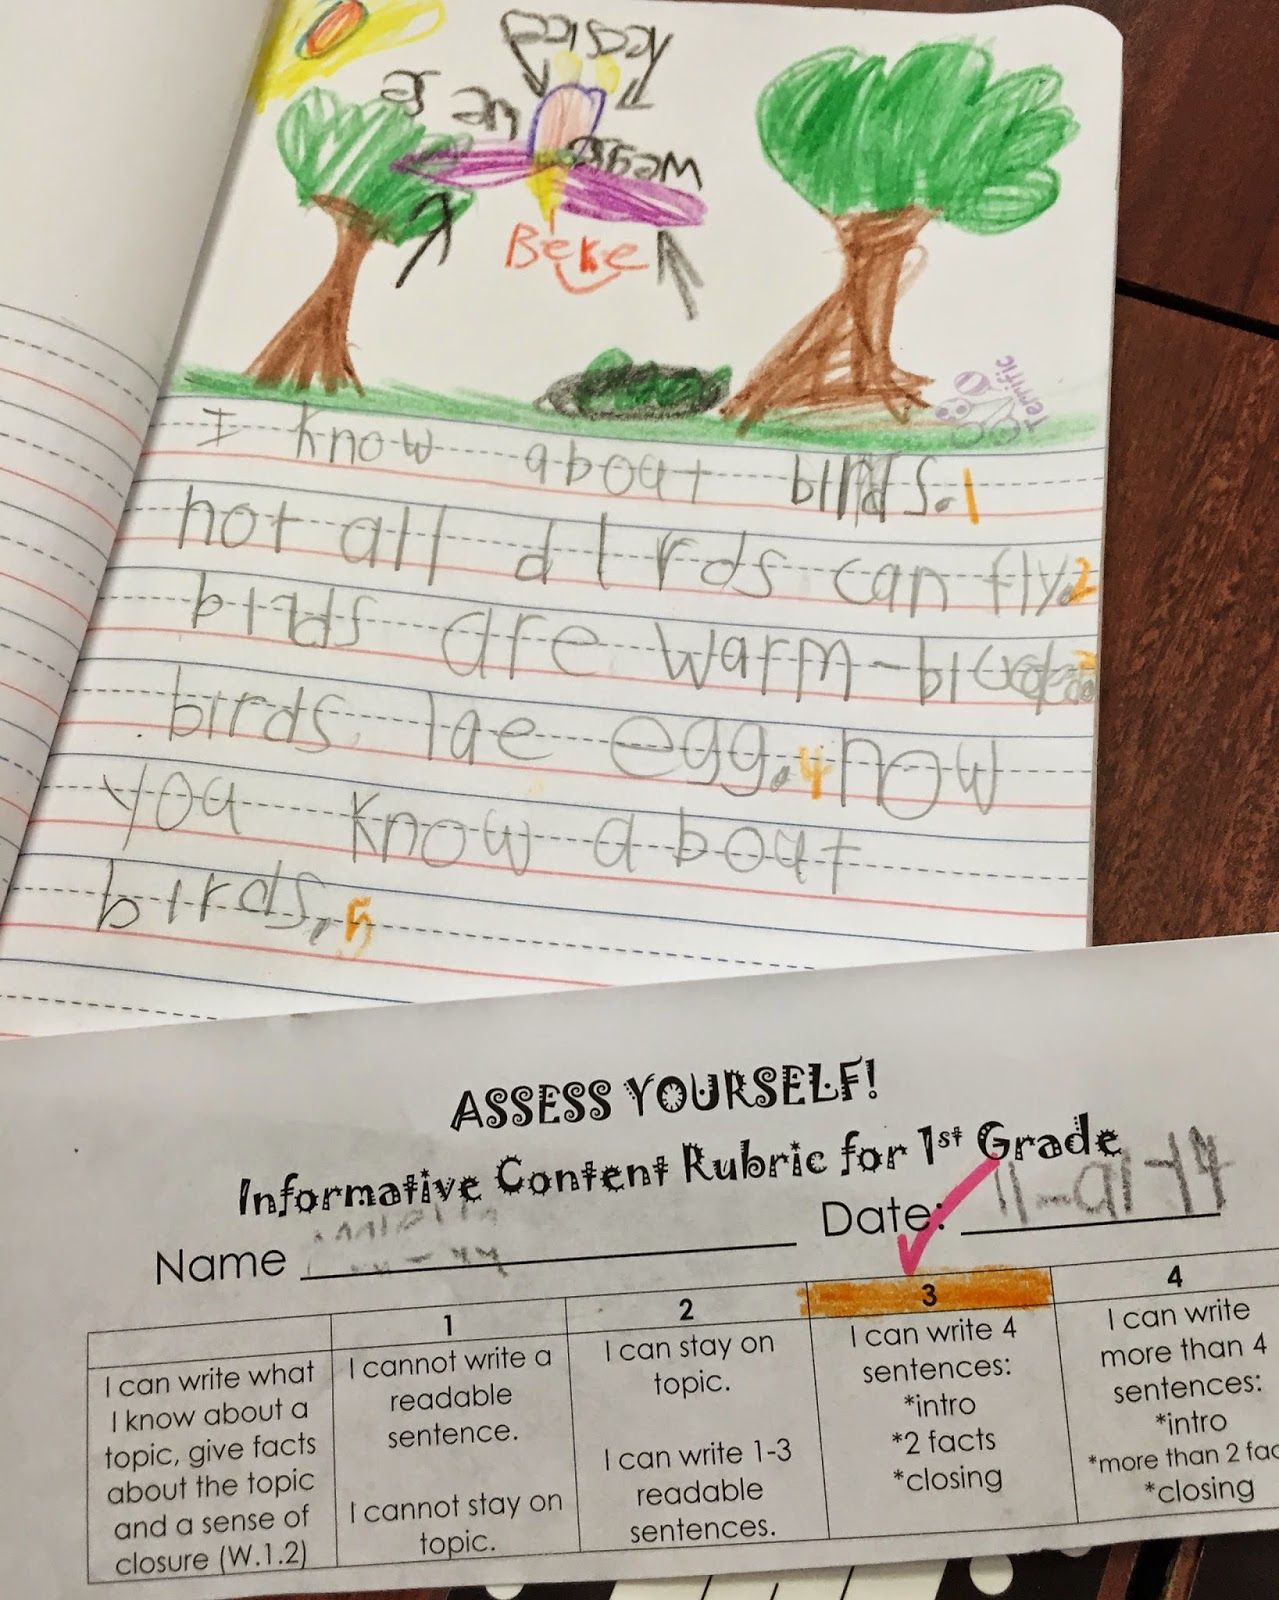 Beke
Terrific
I know aboat birds. 1
not all dirds can fly. 2
birds are warm-
birds lae egg. 4 now
you know aboat
birds. 5
ASSESS YOURSELF!
Informative Content Rubric for 1st Grade
Name Date: 11-21-14
1 2 3 4
I can write what
I know about a
topic, give facts
about the topic
and a sense of
closure (W.1.2)
I cannot write a
readable
sentence.
I cannot stay on
topic.
I can stay on
topic.
I can write 1-3
readable
sentences.
I can write 4
sentences:
*intro
*2 facts
*closing
I can write
more than 4
sentences:
*intro
*more than 2 fac
*closing